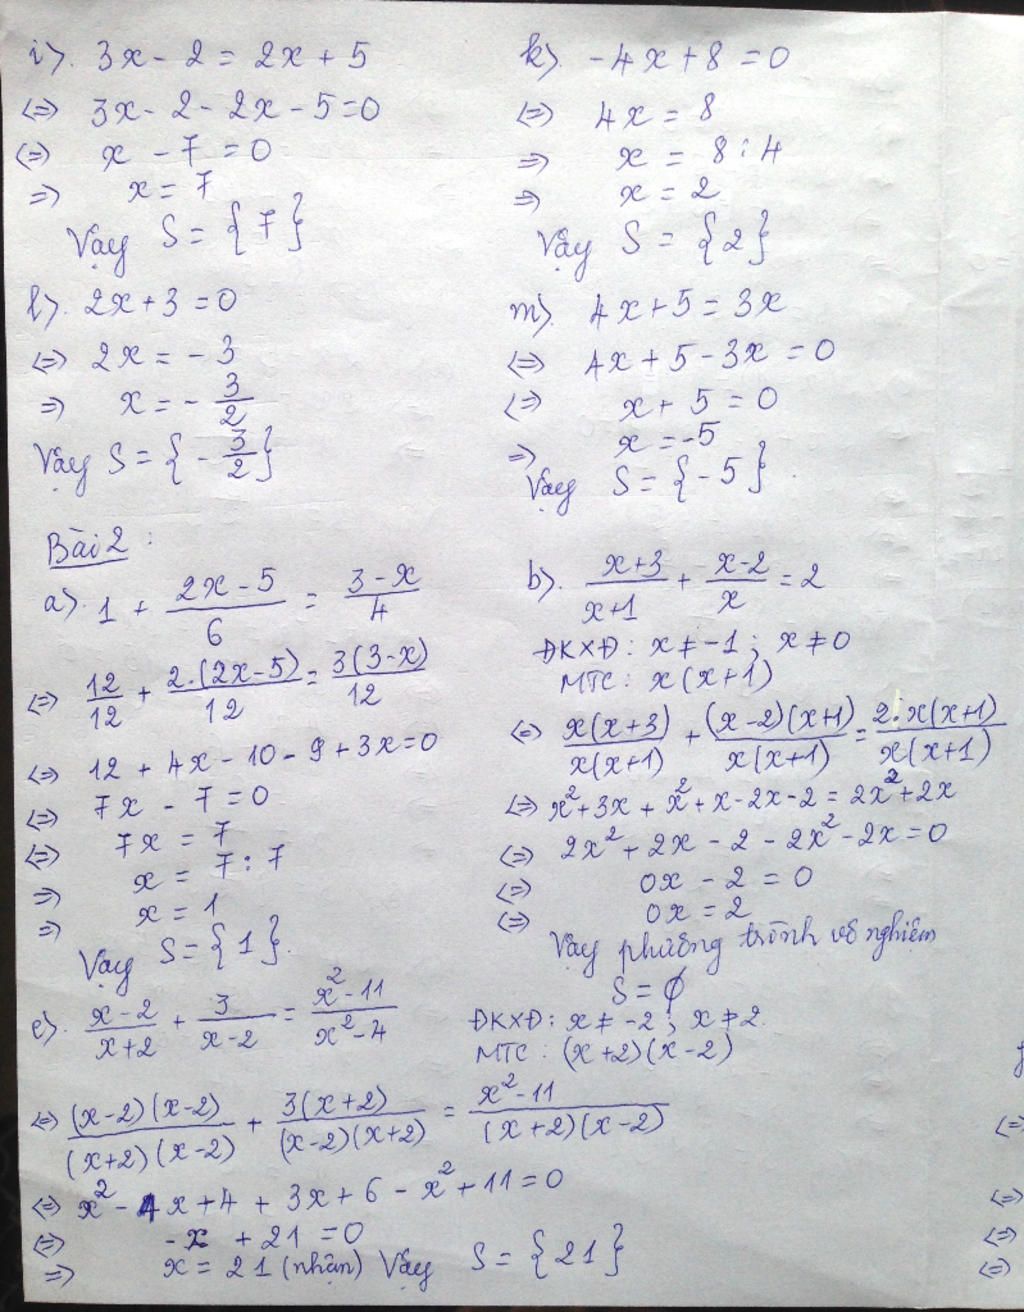 i). 3x - 2 = 2x + 5
<=> 3x - 2 - 2x - 5 = 0
<=> x - 7 = 0
=> x = 7
Vậy S = {7}
k). -4x + 8 = 0
<=> 4x = 8
=> x = 8 : 4
=> x = 2
Vậy S = {2}
l). 2x + 3 = 0
<=> 2x = -3
=> x = -3/2
Vậy S = {-3/2}
m). 4x + 5 = 3x
<=> 4x + 5 - 3x = 0
<=> x + 5 = 0
=> x = -5
Vậy S = {-5}.
Bài 2 :
a). 1 + (2x - 5)/6 = (3 - x)/4
<=> 12/12 + 2.(2x-5)/12 = 3(3-x)/12
<=> 12 + 4x - 10 - 9 + 3x = 0
<=> 7x - 7 = 0
<=> 7x = 7
=> x = 7 : 7
=> x = 1
Vậy S = {1}.
b). (x+3)/(x+1) + (x-2)/x = 2
ĐKXĐ: x ≠ -1 ; x ≠ 0
MTC: x(x+1)
<=> x(x+3)/x(x+1) + (x-2)(x+1)/x(x+1) = 2.x(x+1)/x(x+1)
<=> x² + 3x + x² + x - 2x - 2 = 2x² + 2x
<=> 2x² + 2x - 2 - 2x² - 2x = 0
<=> 0x - 2 = 0
<=> 0x = 2
Vậy phương trình vô nghiệm
S = ∅
c). (x-2)/(x+2) + 3/(x-2) = (x²-11)/(x²-4)
ĐKXĐ: x ≠ -2 ; x ≠ 2.
MTC : (x+2)(x-2)
<=> (x-2)(x-2)/(x+2)(x-2) + 3(x+2)/(x-2)(x+2) = (x²-11)/(x+2)(x-2)
<=> x² - 4x + 4 + 3x + 6 - x² + 11 = 0
<=> -x + 21 = 0
=> x = 21 (nhận) Vậy S = {21}
<=>
<=>
<=>
<=>